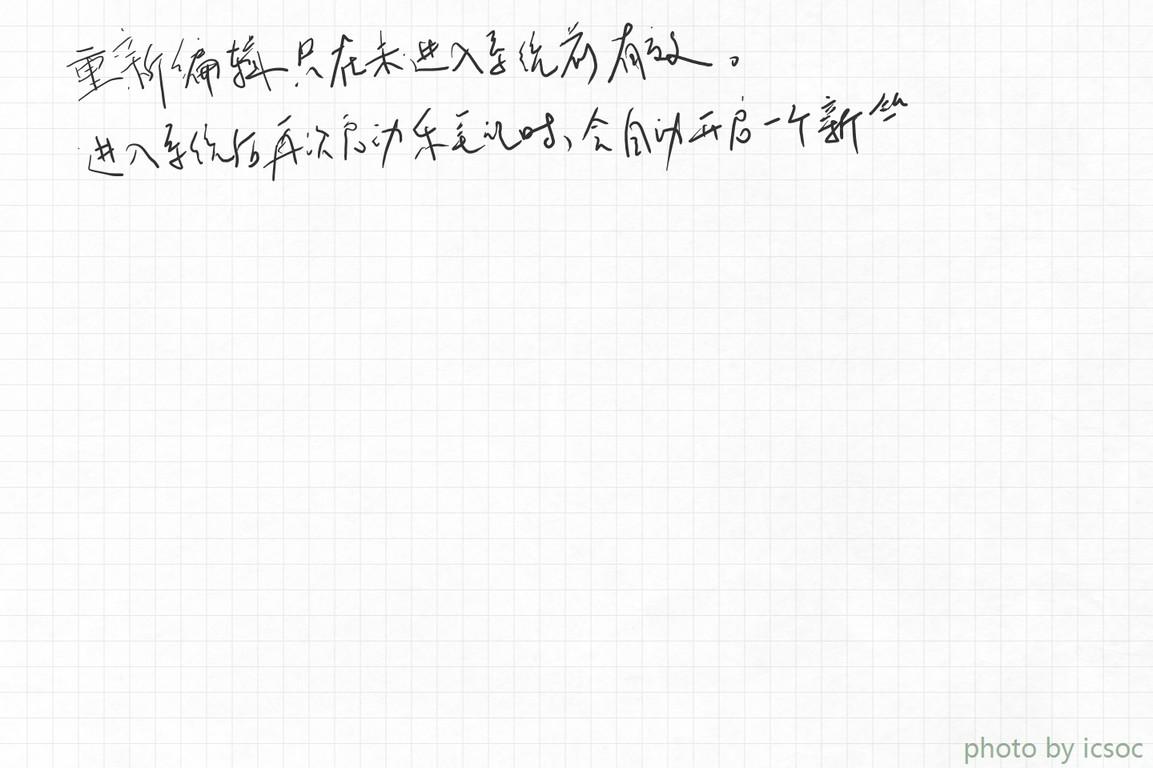 重新编辑只在未进入系统前有效。
进入系统后再次启动乐笔记时,会自动开启一个新
photo by icsoc